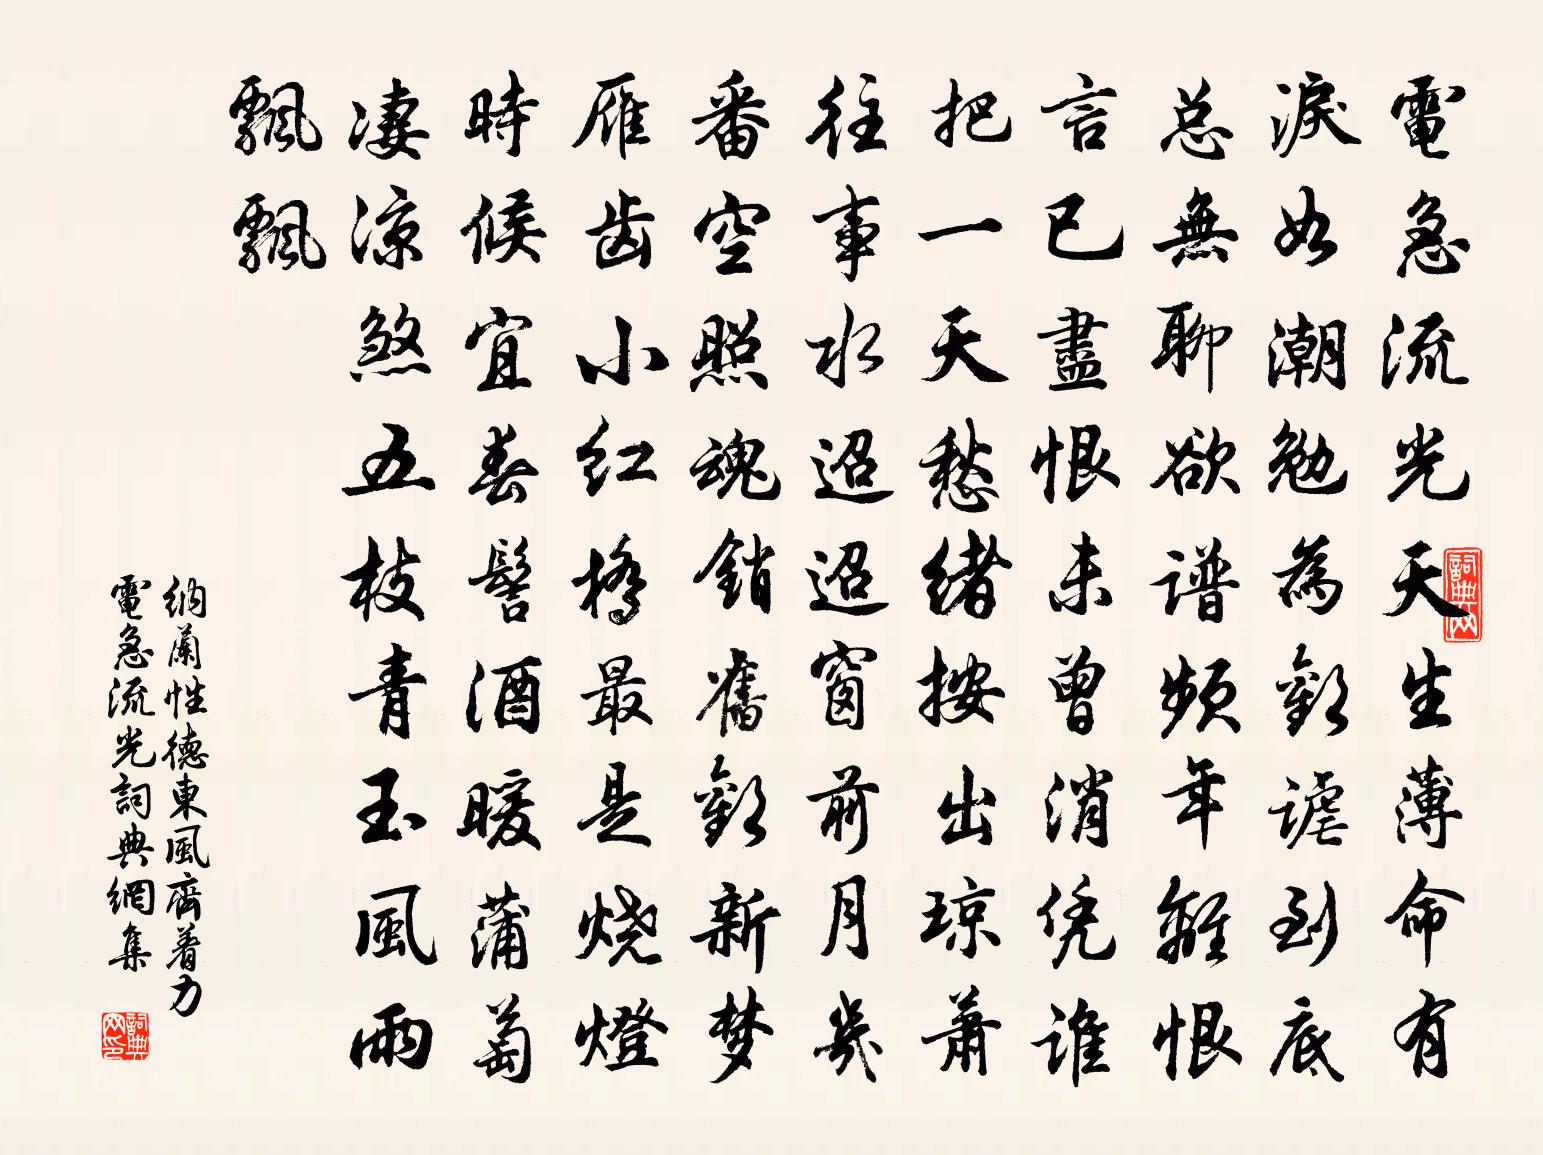 電急流光天生薄命有
淚如潮勉為歡謔到底
总無聊欲谱頻年離恨
言已盡恨未曾消凭谁
把一天愁緒按出琼萧
往事水迢迢窗前月幾
番空照魂銷舊歡新梦
雁齿小红橋最是烧燈
時候宜春髻酒暖蒲萄
凄凉煞五枝青玉風雨
飄飄
納蘭性德東風齊着力
電急流光詞典網集
詞典网
詞典网印